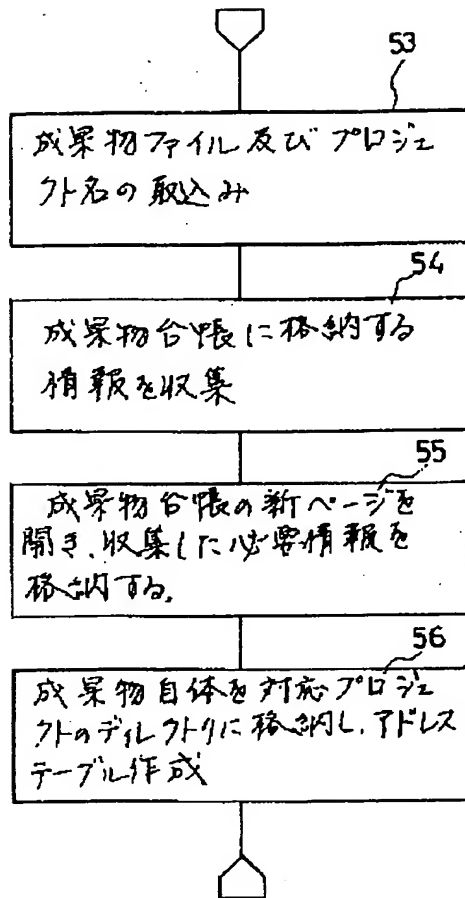 53
成果物ファイル及びプロジェ
クト名の取込み
54
成果物台帳に格納する
情報を収集
55
成果物台帳の新ページを
開き、収集した必要情報を
格納する。
56
成果物自体を対応プロジェ
クトのディレクトリに格納し、アドレス
テーブル作成